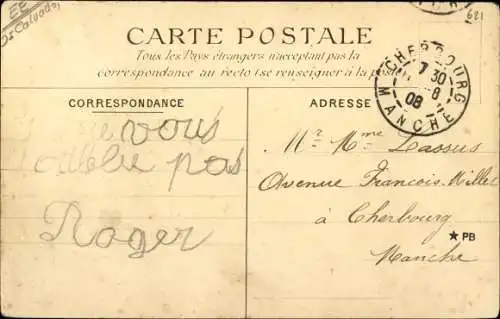 EE
Dt Calvados
681
CARTE POSTALE
Tous les Pays étrangers n'acceptent pas la
correspondance au recto (se renseigner à la poste)
CHERBOURG
7 30
8
08
MANCHE
CORRESPONDANCE
ADRESSE
Je vous
oublie pas
Roger
Mr. Mme Lassus
Avenue François Millet
à Cherbourg
Manche
★ PB